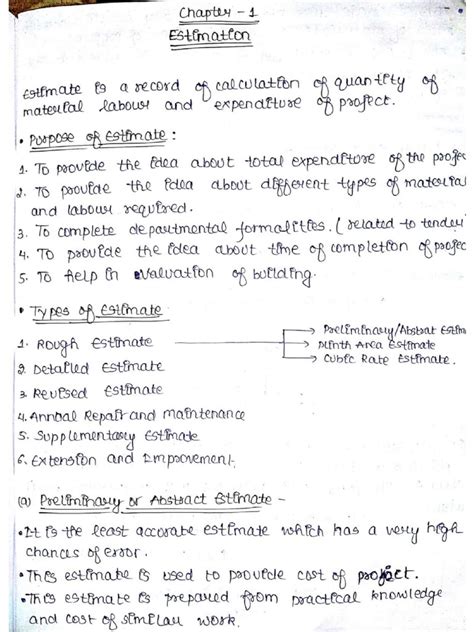 Chapter - 1
Estimation
Estimate is a record of calculation of quantity of
material labour and expenditure of project.
• Purpose of Estimate :
1. To provide the idea about total expenditure of the projec
2. To provide the idea about different types of material
and labour required.
3. To complete departmental formalities. ( related to tender
4. To provide the idea about time of completion of projec
5. To help in Evaluation of building.
• Types of Estimate
1. Rough Estimate
→ Preliminary/Abstrat Estim
→ Plinth Area Estimate
→ Cubic Rate Estimate.
2. Detailed Estimate
3. Revised Estimate
4. Annual Repair and maintenance
5. Supplementary Estimate
6. Extension and Improvement.
(a) Preliminary or Abstract Estimate -
• It is the least accurate estimate which has a very high
chances of error.
• This estimate is used to provide cost of project.
• This estimate is prepared from practical knowledge
and cost of similar work.